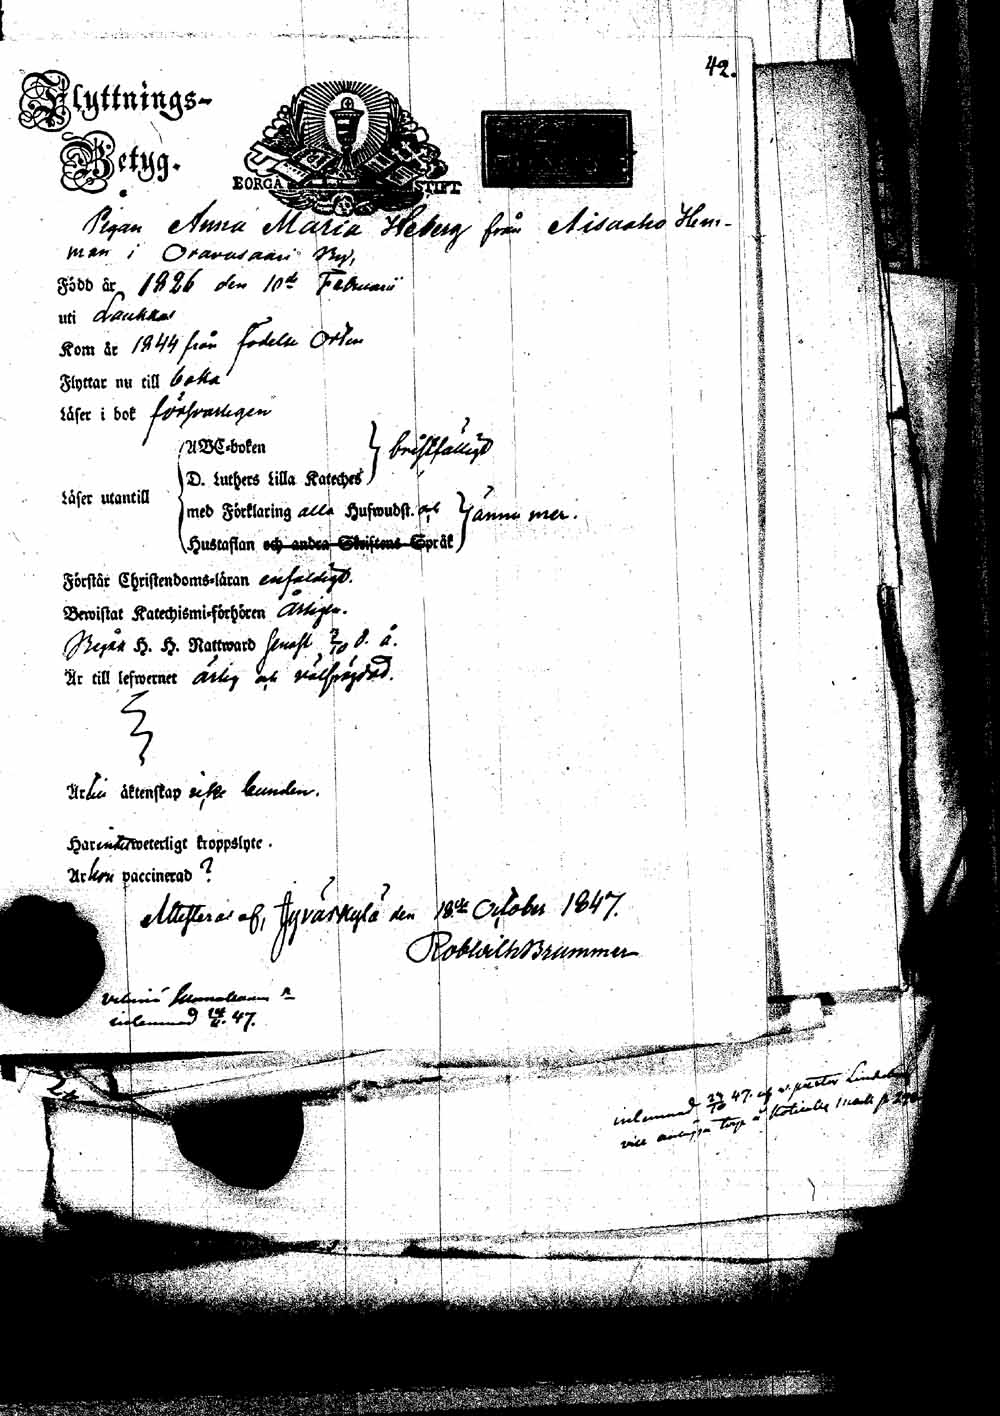 42.
Flyttnings-
Betyg.
BORGÅ STIFT
Pigan Anna Maria Heberg från Aisaaho Hem-
man i Oravasaari By,
Född år 1826 den 10de Februarii
uti Laukkas
Kom år 1844 från Födelse Orten
Flyttar nu till
Läser i bok försvarligen
ABC-boken
D. Luthers Lilla Kateches bristfälligt
Läser utantill
med Förklaring alla Hufwudst. och
Hustaflan och andra Skriftens Språk ännu mer.
Förstår Christendoms-läran enfaldigt.
Bewistat Katechismi-förhören årligen.
Begått H. H. Nattward senast 3/10 d. å.
Är till lefwernet ärlig och välfrägdad.
Är till äktenskap icke bunden.
Har intet weterligt kroppslyte.
Är hon vaccinerad ?
Attesteras af, Jyväskylä den 18de October 1847.
Rob Wilh Brummer
inlemnad 47.
inlemnad 24/10 47. af